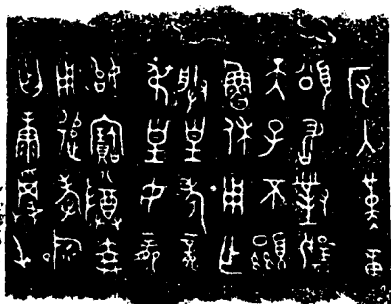 反入堇章
頌敢對揚
天子不顯
魯休用乍
朕皇考龏
弔皇母龏
始寶尊壺
用追孝
匄康屯